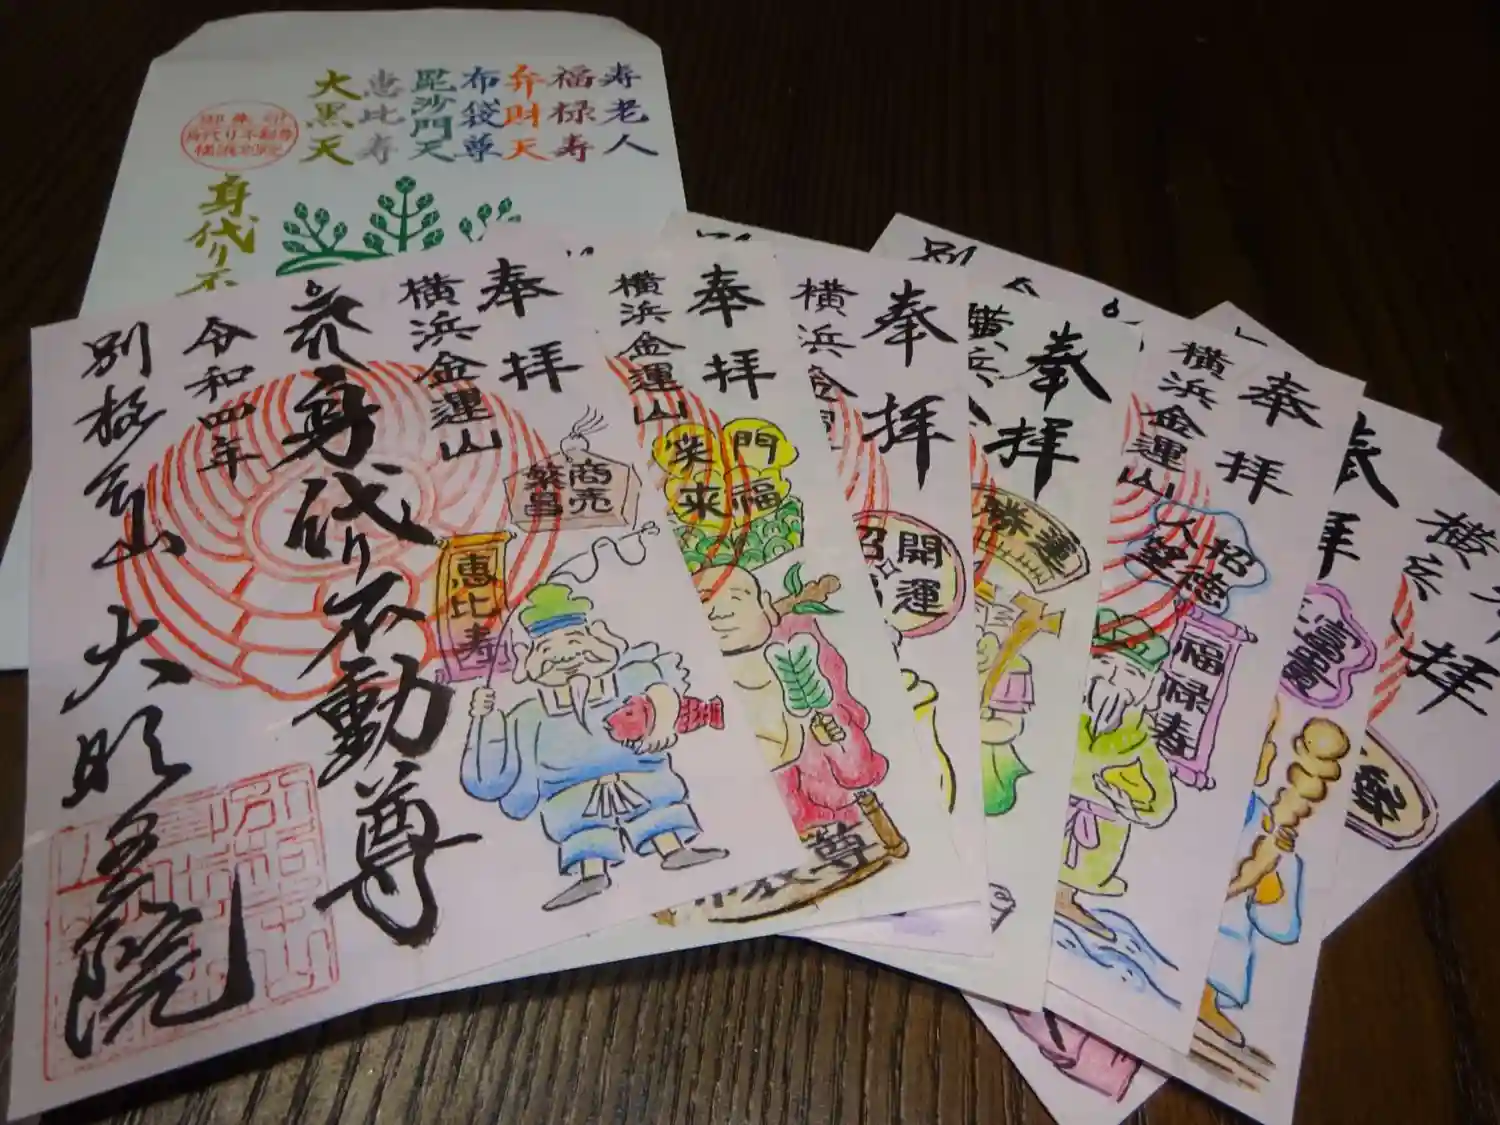 寿老人
福禄寿
弁財天
布袋尊
毘沙門天
恵比寿
大黒天
身代り不動尊
身代り不
奉拝
横浜金運山
商売
繁昌
恵比寿
身代り不動尊
令和四年
別格本山
大明王院
奉拝
横浜金運山
笑門
来福
尊
奉拝
横浜金
開運
招
奉拝
横浜
勝運
奉拝
横浜金運山
招徳
人望
福禄寿
奉拝
富貴
横
拝
別